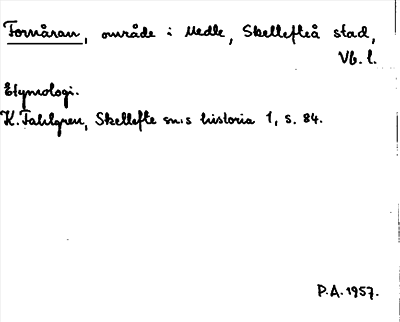 Fornåran, område i Medle, Skellefteå stad,
Vb. l.
Etymologi.
K. Fahlgren, Skellefte sn:s historia 1, s. 84.
P.A. 1957.